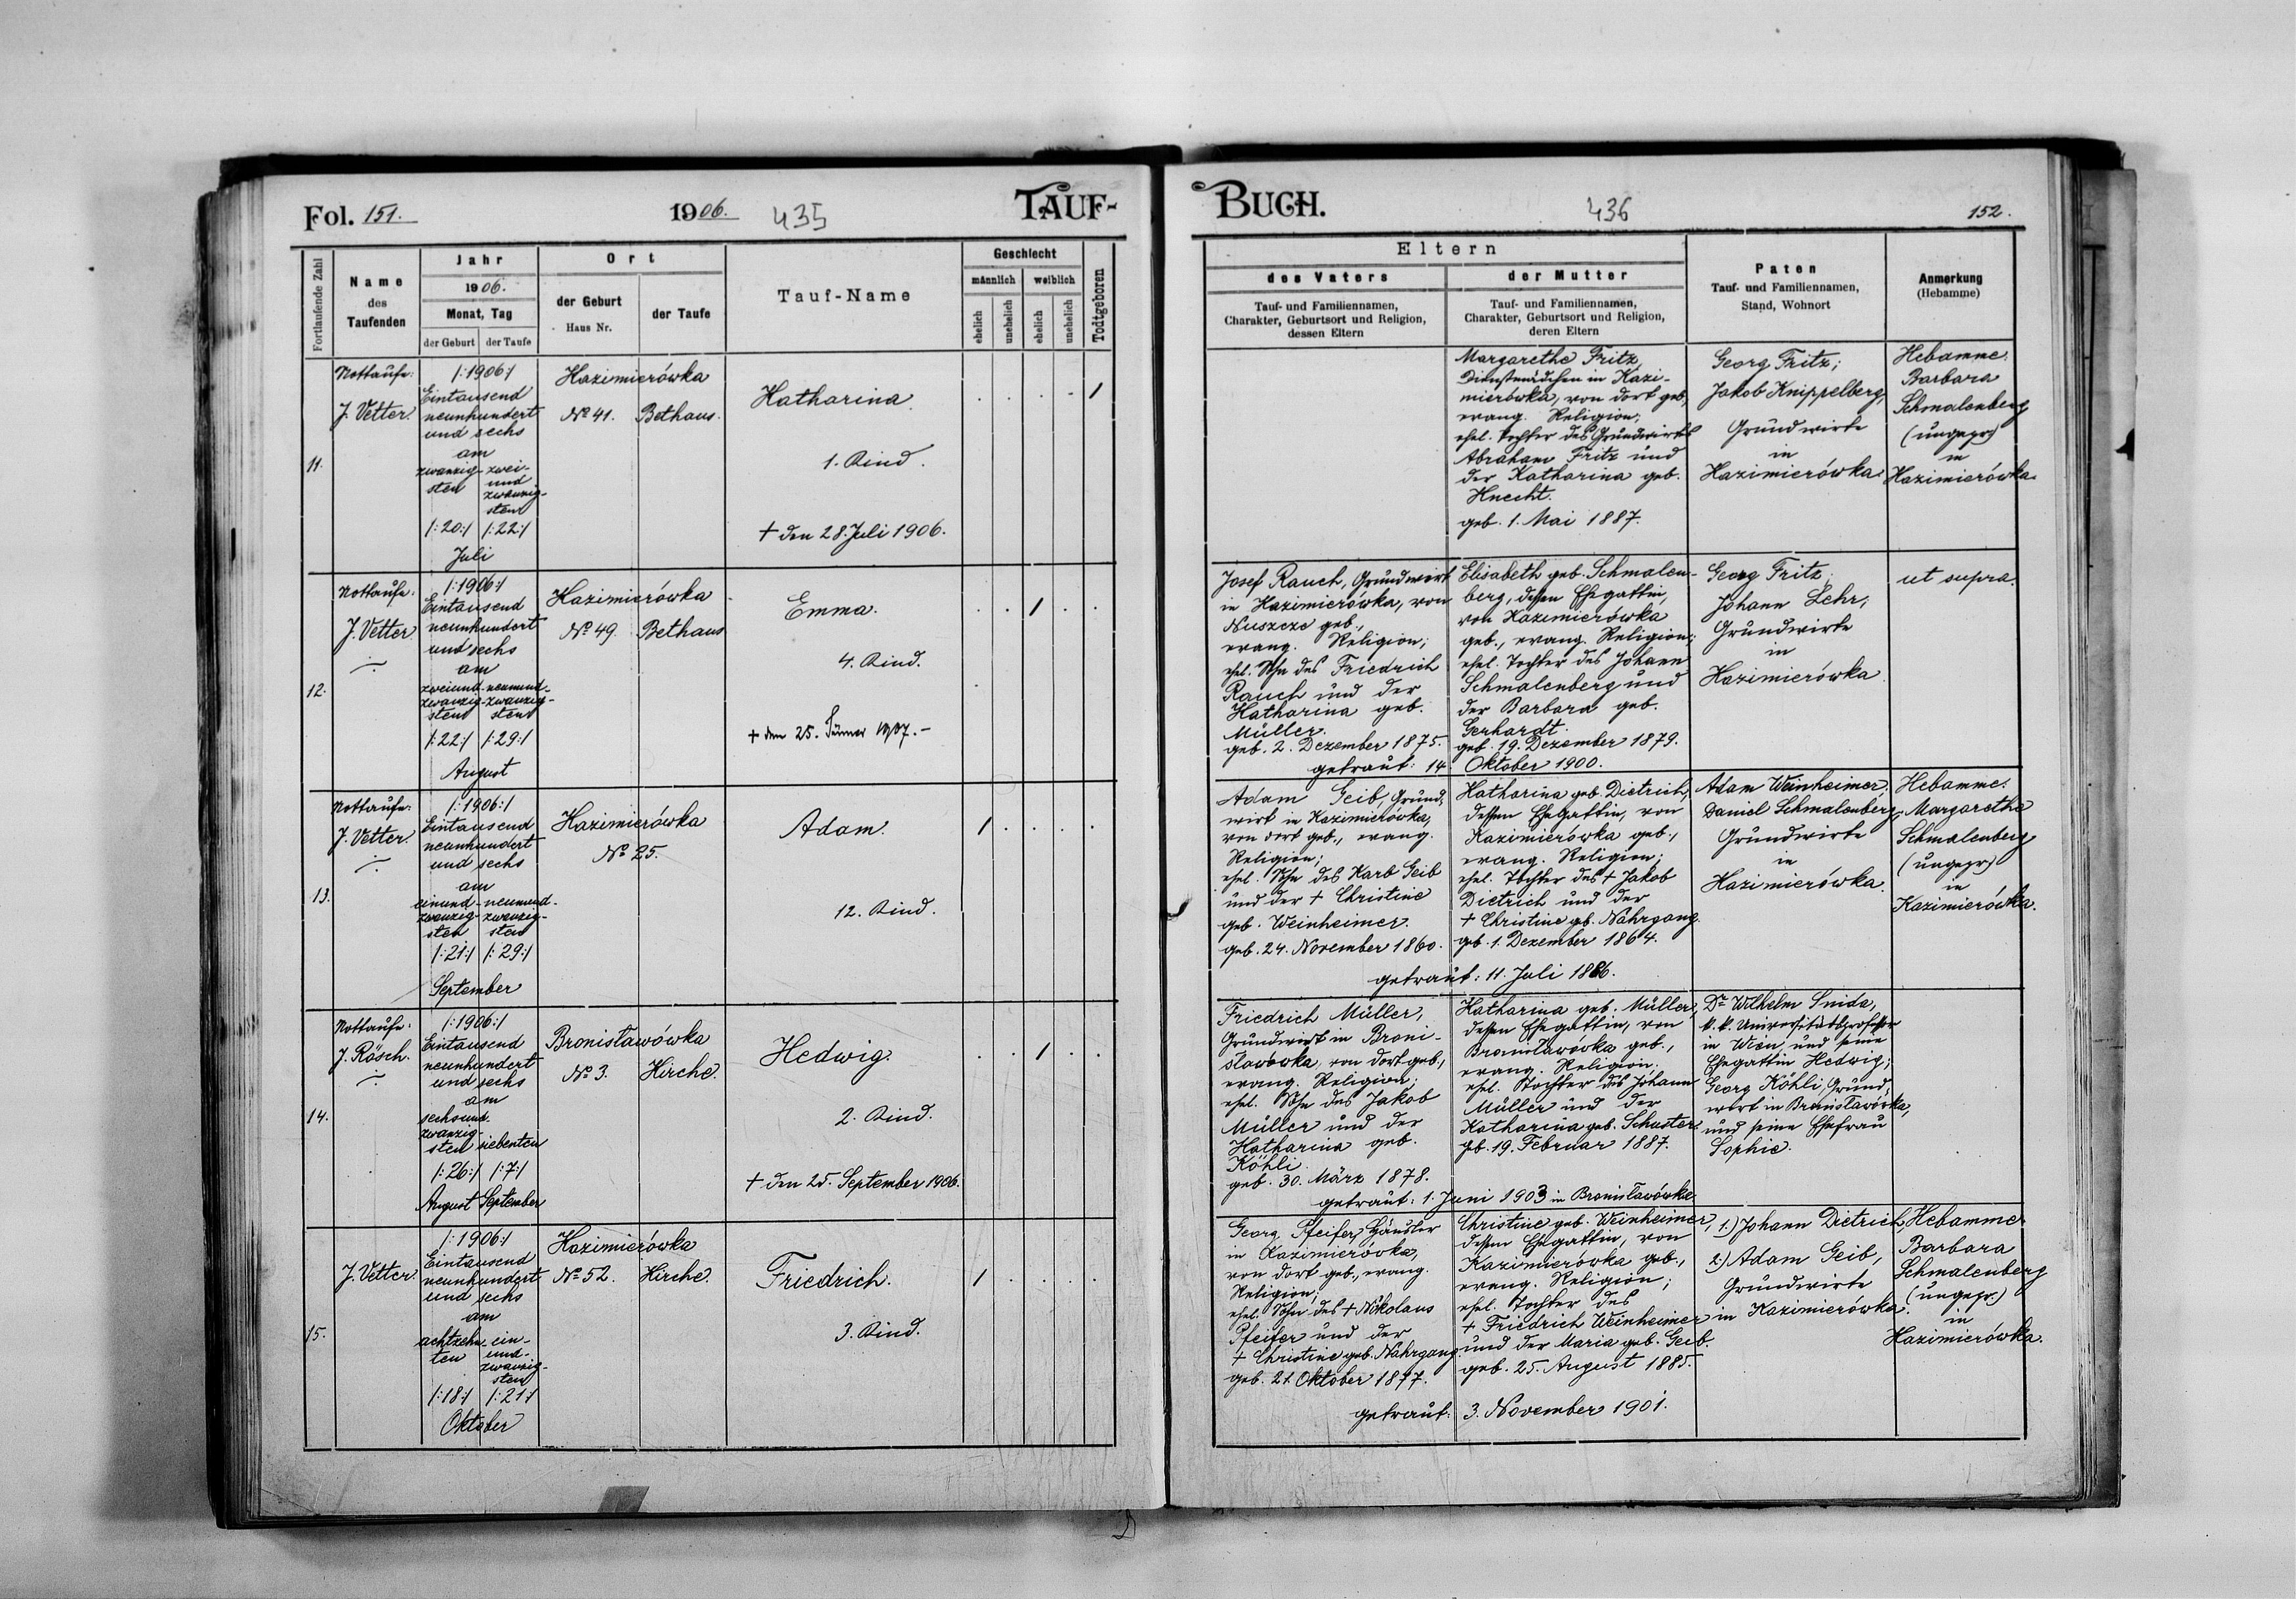 Fol. 151.
1906.
435
TAUF-
Fortlaufende Zahl
Name
des
Taufenden
Jahr
1906.
Monat, Tag
der Geburt
der Taufe
Ort
der Geburt
Haus Nr.
der Taufe
Tauf-Name
Geschlecht
männlich
weiblich
ehelich
unehelich
ehelich
unehelich
Todtgeboren
11.
Nottaufe:
J. Vetter.
/:1906:/
Eintausend
neunhundert
und sechs
am
zwanzig-
sten
zwei-
und
zwanzig-
sten
/:20:/ /:22:/
Juli
Kazimierówka
No 41. Bethaus.
Katharina.
1. Kind.
† den 28. Juli 1906.
12.
Nottaufe:
J. Vetter
/:1906:/
Eintausend
neunhundert
und sechs
am
zweiund-
zwanzig-
sten
neunund-
zwanzig-
sten
/:22:/ /:29:/
August
Kazimierówka
No 49. Bethaus
Emma.
4. Kind.
† den 25. Jänner 1907.-
13.
Nottaufe:
J. Vetter.
/:1906:/
Eintausend
neunhundert
und sechs
am
einund-
zwanzig-
sten
neunund-
zwanzig-
sten
/:21:/ /:29:/
September
Kazimierówka
No 25.
Adam.
12. Kind.
14.
Nottaufe:
J. Rösch.
/:1906:/
Eintausend
neunhundert
und sechs
am
sechsund-
zwanzig-
sten siebenten
/:26:/ /:7:/
August September
Bronisławówka
No 3. Kirche.
Hedwig.
2. Kind.
† den 25. September 1906.
15.
J. Vetter.
/:1906:/
Eintausend
neunhundert
und sechs
am
achtzehn-
ten
ein-
und-
zwanzig-
sten
/:18:/ /:21:/
Oktober
Kazimierówka
No 52. Kirche.
Friedrich.
3. Kind.
BUCH.
436
152.
Eltern
des Vaters
Tauf- und Familiennamen,
Charakter, Geburtsort und Religion,
dessen Eltern
der Mutter
Tauf- und Familiennamen,
Charakter, Geburtsort und Religion,
deren Eltern
Paten
Tauf- und Familiennamen,
Stand, Wohnort
Anmerkung
(Hebamme)
Margarethe Fritz,
Dienstmädchen in Kazi-
mierówka, von dort geb.,
evang. Religion;
ehel. Tochter des Grundwirts
Abraham Fritz und
der Katharina geb.
Knecht.
geb. 1. Mai 1887.
Georg Fritz;
Jakob Knippelberg,
Grundwirte
in
Kazimierówka.
Hebamme:
Barbara
Schmalenberg
(ungepr.)
in
Kazimierówka.
Josef Rauch, Grundwirt
in Kazimierówka, von
Nuszcze geb.,
evang. Religion;
ehel. Sohn des Friedrich
Rauch und der
Katharina geb.
Müller.
geb. 2. Dezember 1875.
Elisabeth geb. Schmalen-
berg, dessen Ehegattin,
von Kazimierówka
geb., evang. Religion;
ehel. Tochter des Johann
Schmalenberg und
der Barbara geb.
Gerhardt.
geb. 19. Dezember 1879.
getraut: 14. Oktober 1900.
Georg Fritz,
Johann Lehr,
Grundwirte
in
Kazimierówka.
ut supra.
Adam Geib, Grund-
wirt in Kazimierówka,
von dort geb., evang.
Religion;
ehel. Sohn des Karb Geib
und der † Christine
geb. Weinheimer.
geb. 24. November 1860.
Katharina geb. Dietrich,
dessen Ehegattin, von
Kazimierówka geb.,
evang. Religion;
ehel. Tochter des † Jakob
Dietrich und der
† Christine geb. Nahrgang.
geb. 1. Dezember 1864.
getraut: 11. Juli 1886.
Adam Weinheimer,
Daniel Schmalenberg,
Grundwirte
in
Kazimierówka.
Hebamme:
Margarethe
Schmalenberg
(ungepr.)
in
Kazimierówka.
Friedrich Müller,
Grundwirt in Broni-
sławówka, von dort geb.,
evang. Religion;
ehel. Sohn des Jakob
Müller und der
Katharina geb.
Köhli.
geb. 30. März 1878.
Katharina geb. Müller,
dessen Ehegattin, von
Bronisławówka geb.,
evang. Religion;
ehel. Tochter des Johann
Müller und der
Katharina geb. Schuster.
geb. 19. Februar 1887.
getraut: 1. Juni 1903 in Bronisławówka
Dr Wilhelm Snida,
k. k. Universitätsprofessor
in Wien, und seine
Ehegattin Hedwig;
Georg Köhli, Grund-
wirt in Bronisławówka,
und seine Ehefrau
Sophie.
Georg Pfeifer, Häusler
in Kazimierówka,
von dort geb., evang.
Religion;
ehel. Sohn des † Nikolaus
Pfeifer und der
† Christine geb. Nahrgang.
geb. 21. Oktober 1877.
Christine geb. Weinheimer,
dessen Ehegattin, von
Kazimierówka geb.,
evang. Religion;
ehel. Tochter des
† Friedrich Weinheimer
und der Maria geb. Geib.
geb. 25. August 1885.
getraut: 3. November 1901.
1.) Johann Dietrich,
2.) Adam Geib,
Grundwirte
in Kazimierówka.
Hebamme
Barbara
Schmalenberg
(ungepr.)
in
Kazimierówka.